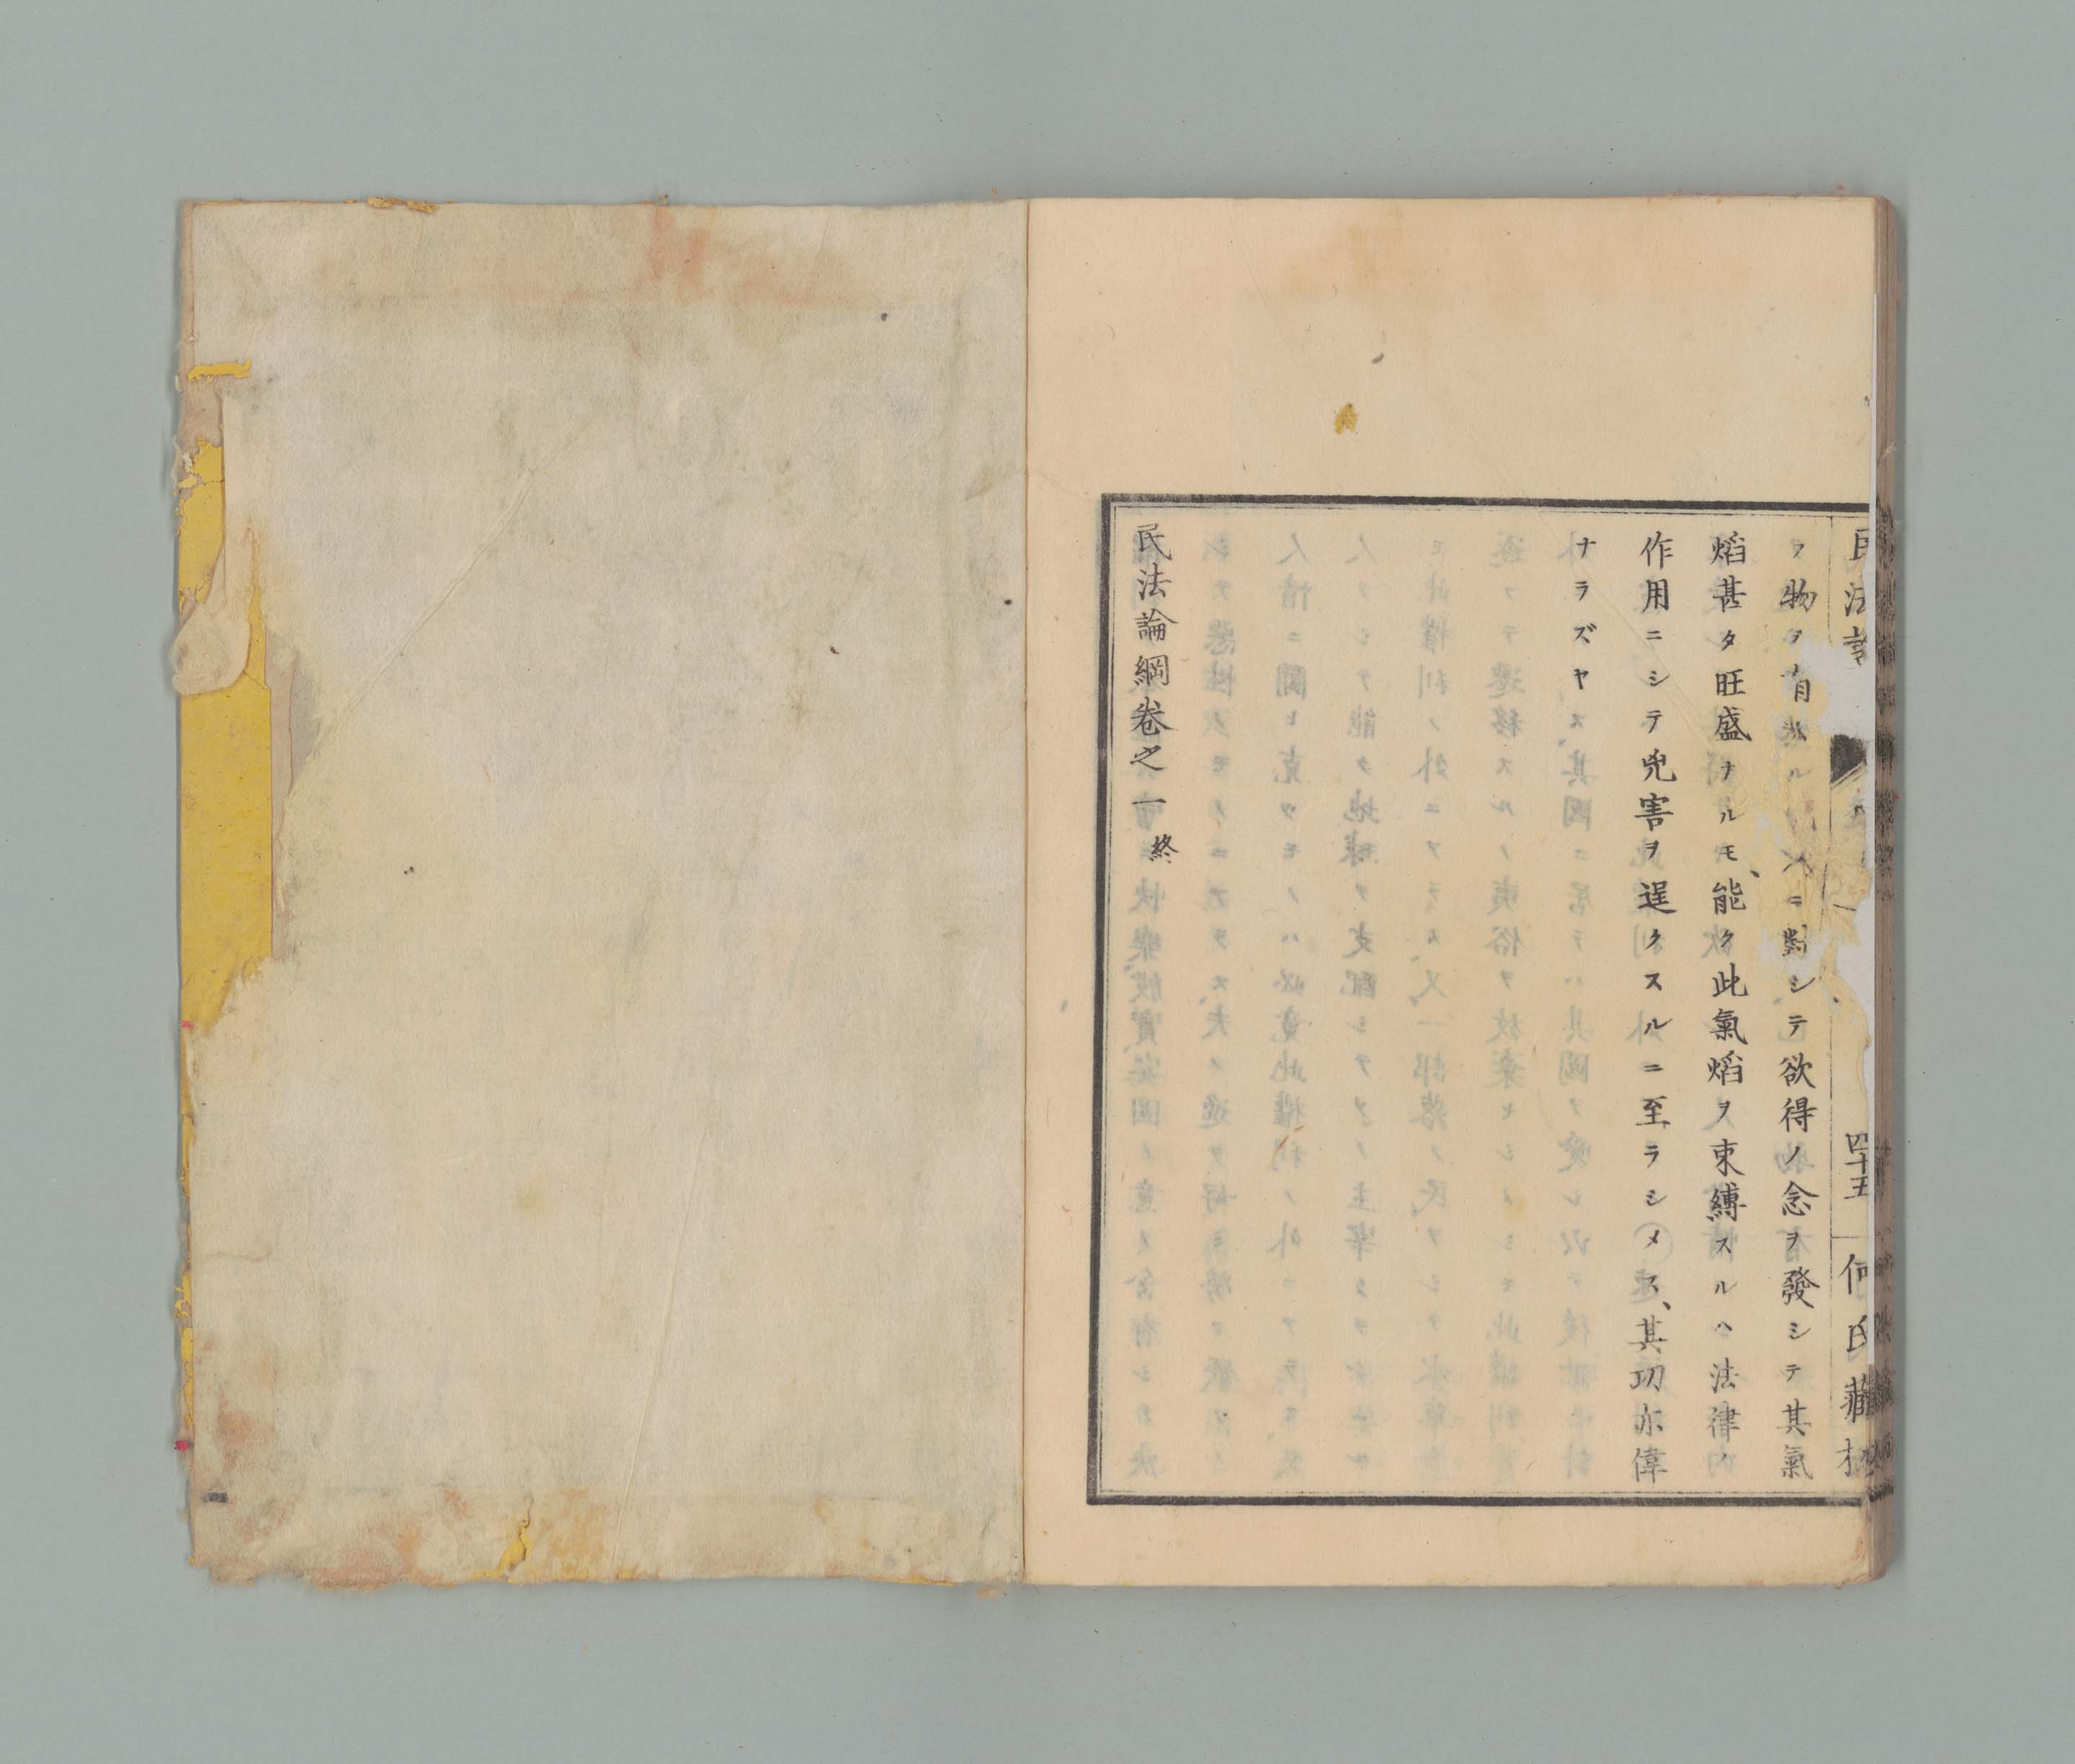 民法論
四十五
何氏藏板
フ物ヲ有スル人ニ對シテ欲得ノ念ヲ發シテ其氣
焰甚タ旺盛ナルモ、能ク此氣焰ヲ束縛スルハ法律ノ
作用ニシテ兇害ヲ逞クスルニ至ラシメス、其功亦偉
ナラズヤ
民法論綱卷之一 終